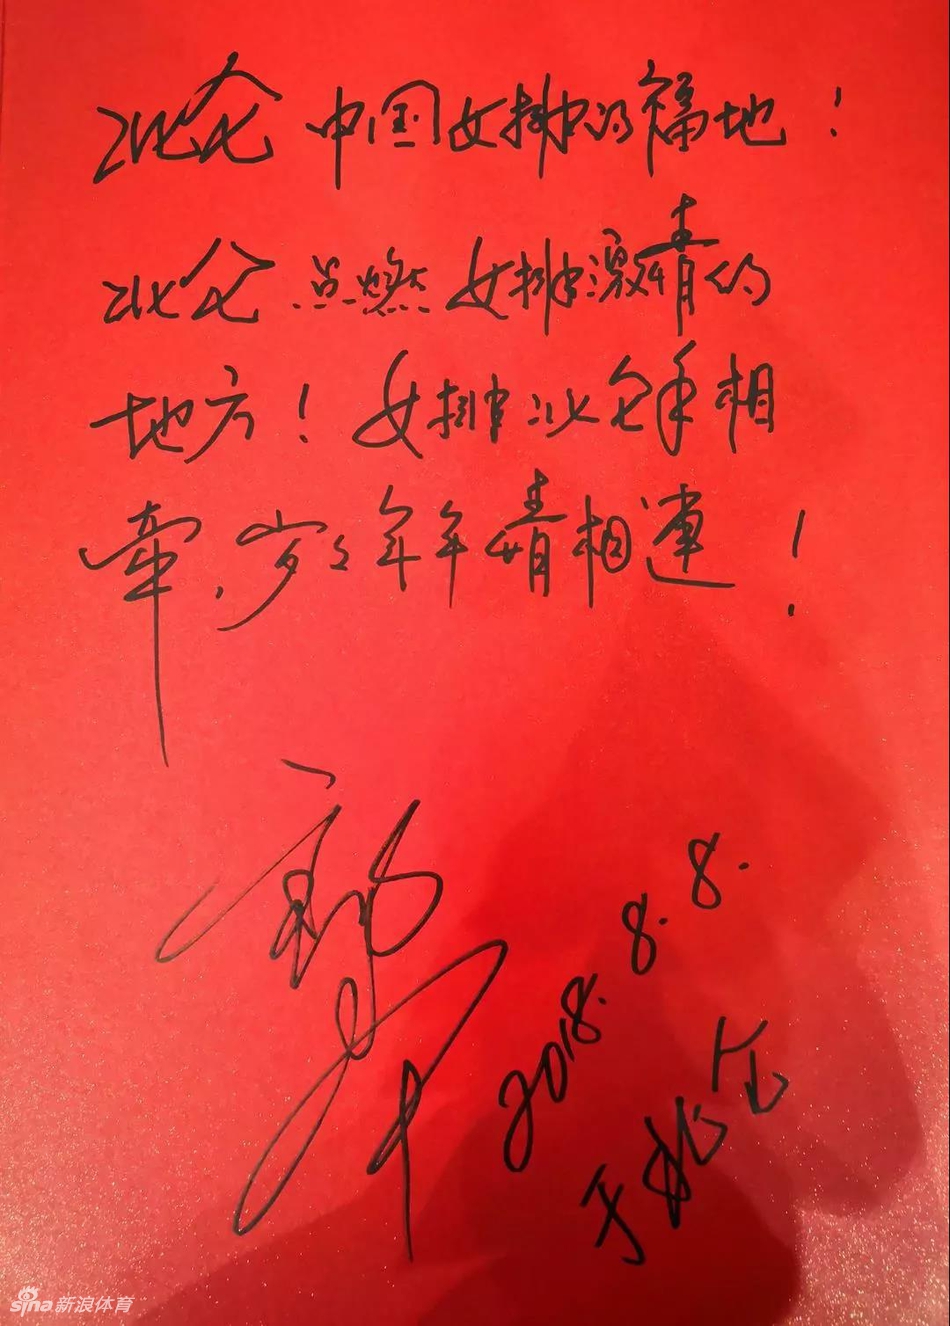 北仑 中国女排的福地！
北仑 点燃 女排激情的
地方！女排北仑手相
牵，岁々年年情相连！
2018.8.8.
于北仑
sina新浪体育